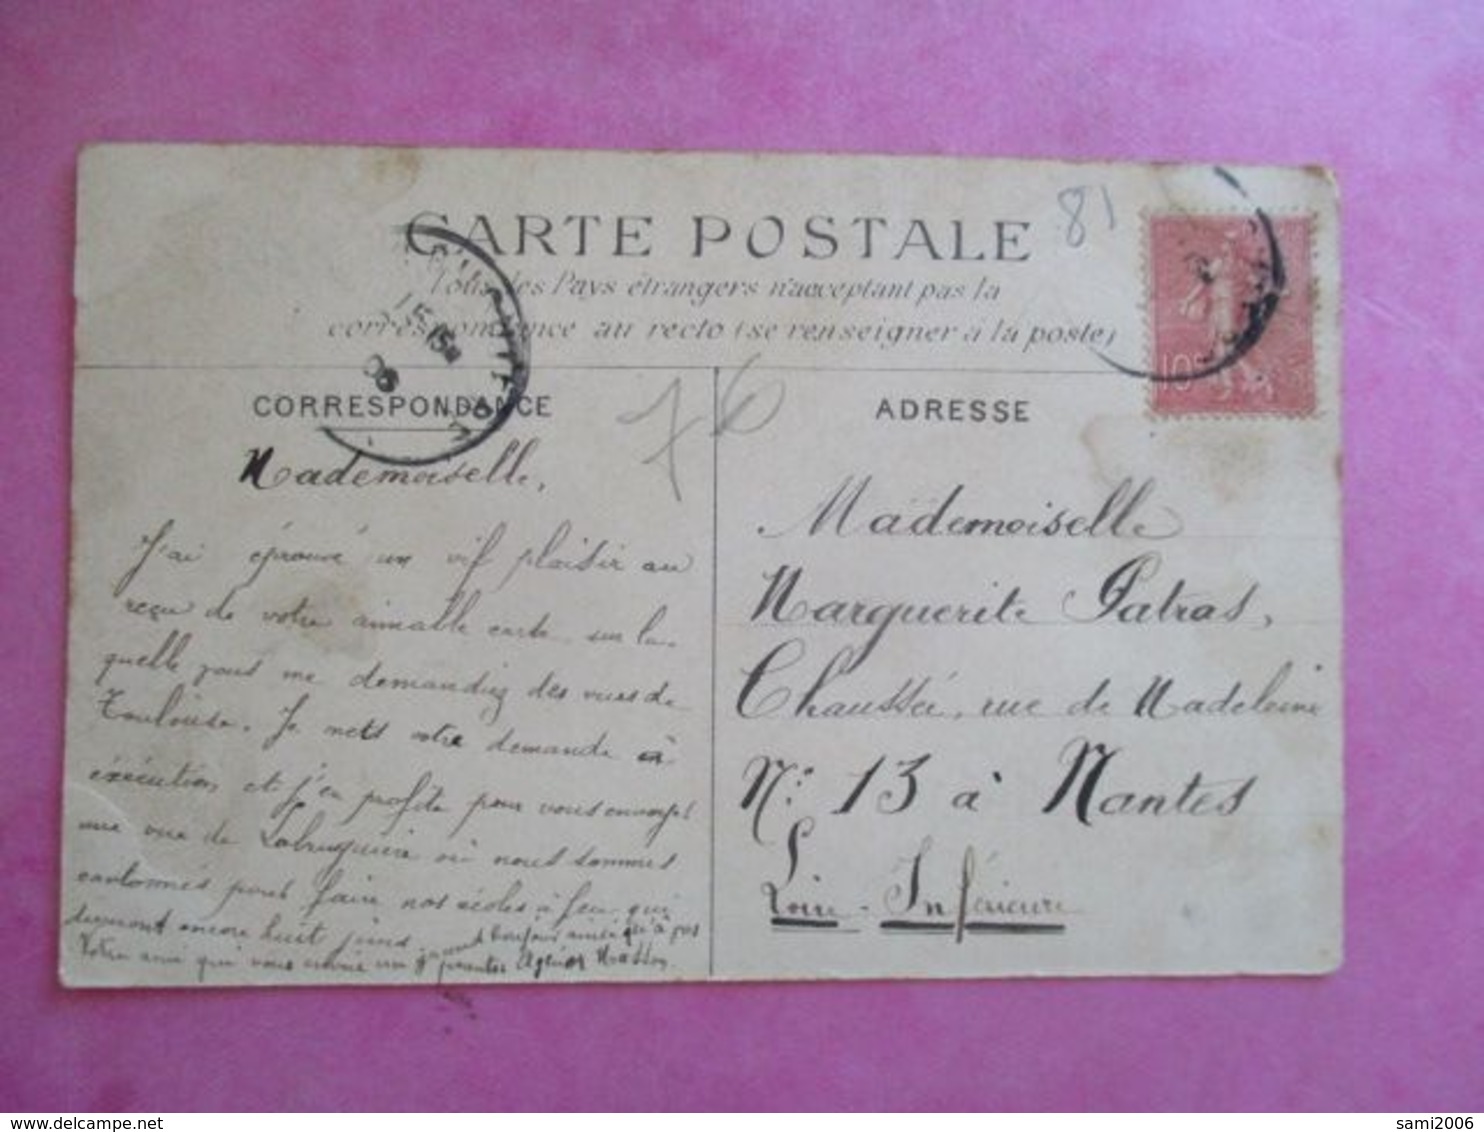 81
CARTE POSTALE
Tous les Pays étrangers n'acceptent pas la
correspondance au recto (se renseigner à la poste)
10c
76
CORRESPONDANCE
Mademoiselle,
J'ai éprouvé un vif plaisir au
reçu de votre aimable carte sur la-
quelle vous me demandiez des vues de
Toulouse. Je mets votre demande à
exécution et j'en profite pour vous envoyer
une vue de Labruguière où nous sommes
cantonnés pour faire nos écoles à feu qui
dureront encore huit jours.
Votre ami qui vous envoie un grand bonjour ainsi qu'à vos
parents Agénor Masson
ADRESSE
Mademoiselle
Marguerite Patras,
Chaussée, rue de Madeleine
N° 13 à Nantes
Loire-Inférieure
sami2006